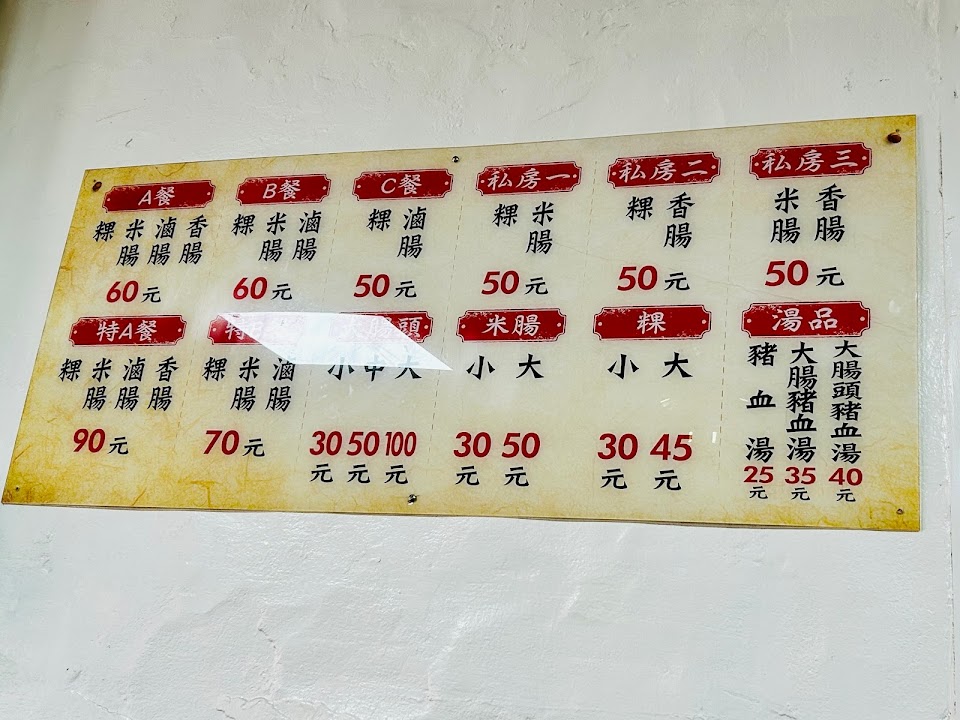 A餐
粿 米腸 滷腸 香腸
60元
B餐
粿 米腸 滷腸
60元
C餐
粿 滷腸
50元
私房一
粿 米腸
50元
私房二
粿 香腸
50元
私房三
米腸 香腸
50元
特A餐
粿 米腸 滷腸 香腸
90元
特B
粿 米腸 滷腸
70元
大腸頭
小 中 大
30元 50元 100元
米腸
小 大
30元 50元
粿
小 大
30元 45元
湯品
豬血湯 25元
大腸豬血湯 35元
大腸頭豬血湯 40元